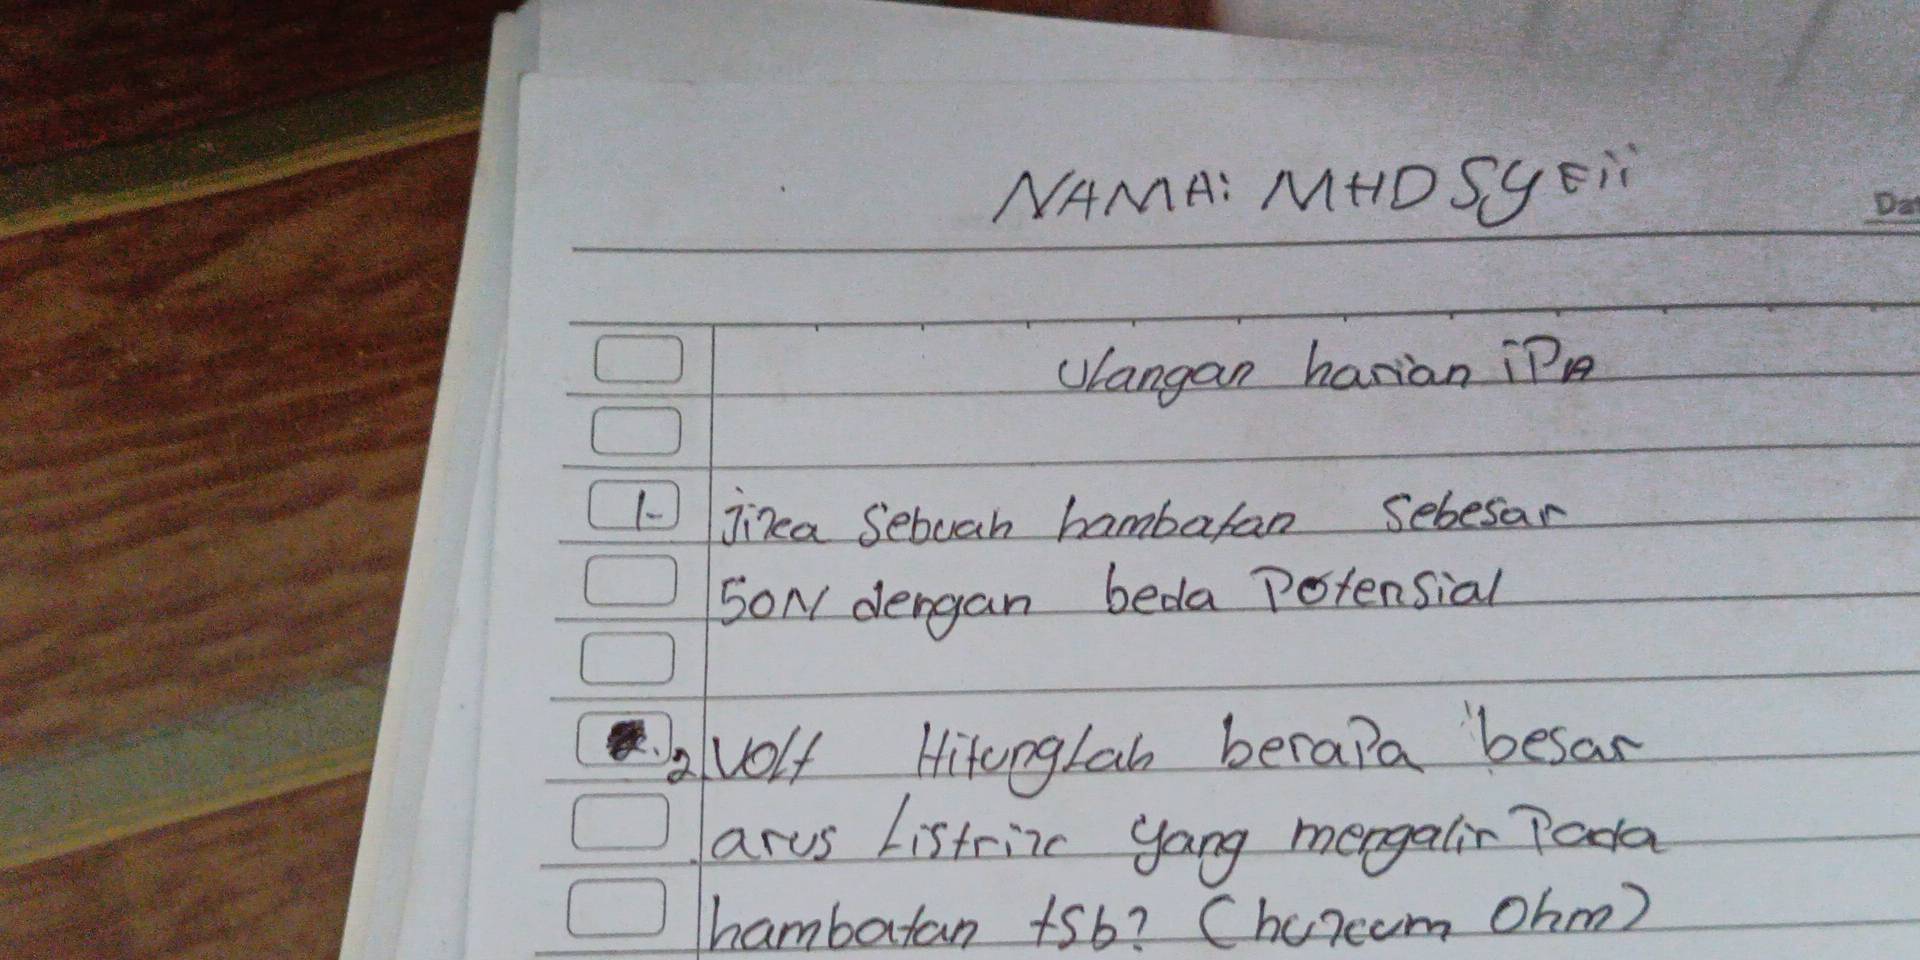 NAMA: MHD SYFii
Dat
Ulangan harian iPA
1- Jika Sebuah hambatan Sebesar
50N dengan beda Potensial
2 Volt Hitunglah berapa besar
arus Listrik yang mengalir Pada
hambatan tsb? (hukum Ohm)